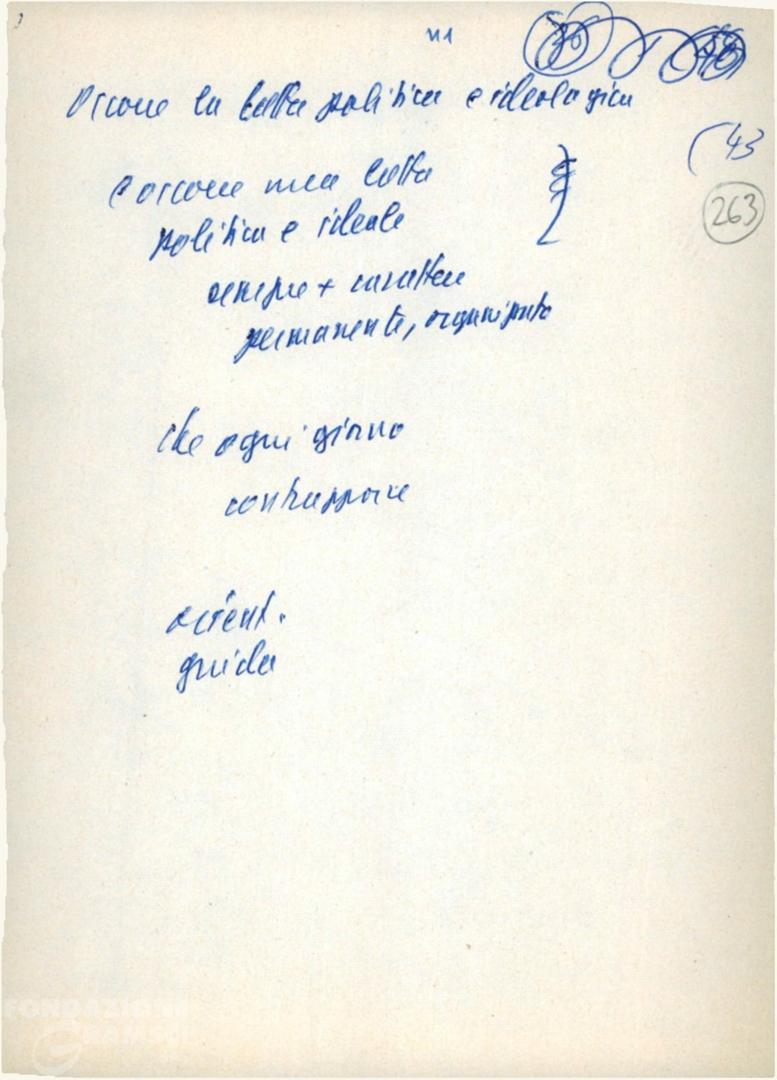 41
Occorre la lotta politica e ideologica
(43
263
E occorre una lotta
politica e ideale
sempre + carattere
permanente, organizzato
che ogni giorno
contrappone
orient.
guida
FONDAZIONE
GRAMSCI